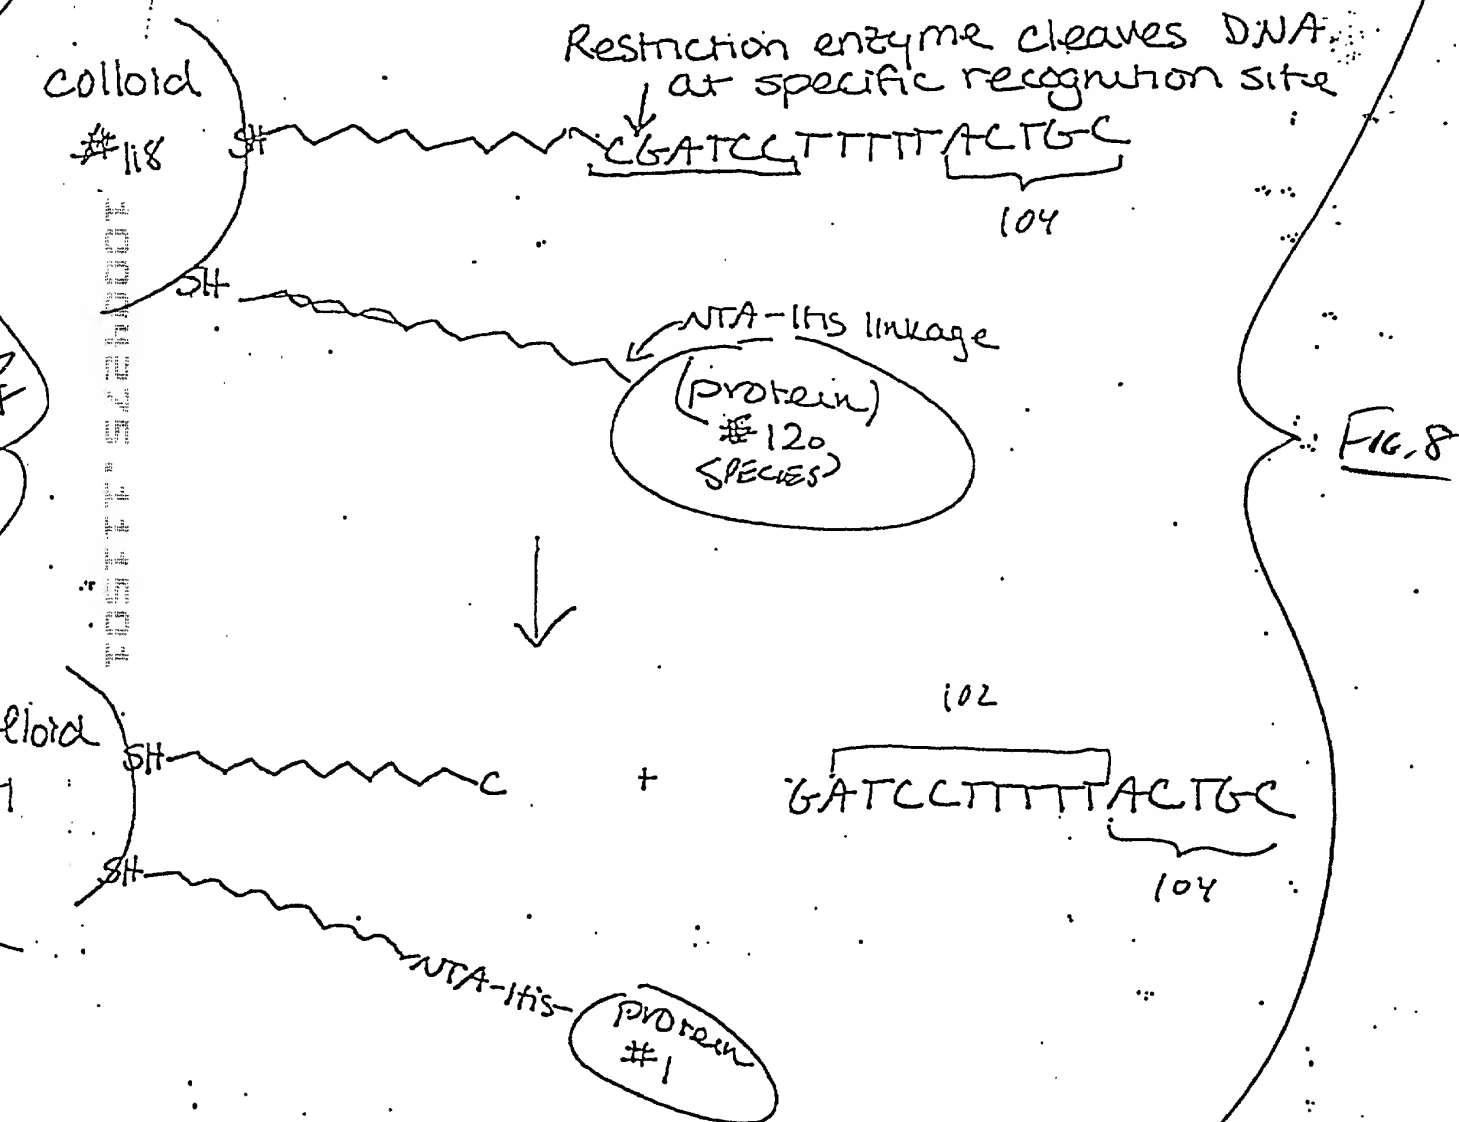 Restriction enzyme cleaves DNA
at specific recognition site
colloid
#118
SH
CGATCCTTTTTACTGC
104
SH
NTA-His linkage
(protein)
#120
SPECIES
FIG. 8
10004275.111501
102
lloid
SH
C
+
GATCCTTTTTACTGC
1
104
SH
NTA-His-
protein
#1